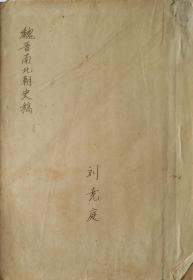 魏晋南北朝史稿
刘尧庭